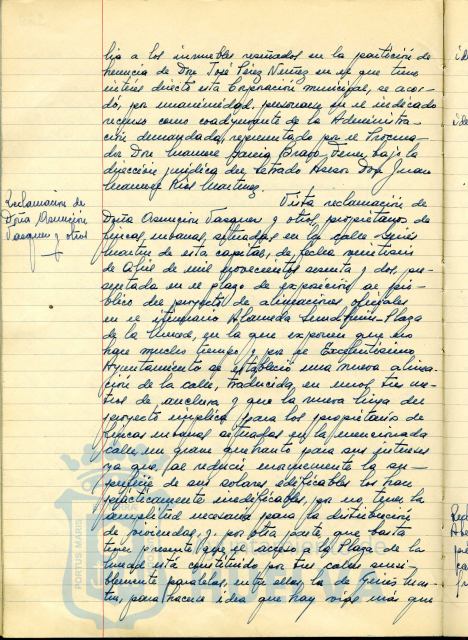 lija a los inmuebles reseñados en la partición de
herencia de Don José Pérez Núñez en el que tiene
interés directo esta Corporación municipal, se acor-
dó, por unanimidad, personarse en el indicado
recurso como coadyuvante de la Administra-
ción demandada, representado por el Procura-
dor Don Manuel García Bravo Ferrer, bajo la
dirección jurídica del Letrado Asesor Don Juan
Manuel Ríos Martínez.
Reclamación de
Doña Asunción
Vasquez y otros
Vista reclamación de
Doña Asunción Vasquez y otros propietarios de
fincas urbanas situadas en la calle Ginés
Martín de esta capital, de fecha veintiseis
de Abril de mil novecientos sesenta y dos, pre-
sentada en el plazo de exposición al pú-
blico del proyecto de alineaciones oficiales
en el itinerario Alameda Sundheim-Plaza
de la Merced, en la que exponen que no
hace mucho tiempo y por el Excelentísimo
Ayuntamiento se estableció una nueva alinea-
ción de la calle, traducida, en unos tres me-
tros de anchura y que la nueva línea del
proyecto implica para los propietarios de
fincas urbanas situadas en la mencionada
calle, un grave quebranto para sus intereses
ya que, al reducir enormemente la su-
perficie de sus solares edificables los hace
prácticamente inedificables, por no tener la
amplitud necesaria para la distribución
de viviendas, y por otra parte, que basta
tener presente que el acceso a la Plaza de la
Merced está constituido por tres calles sensi-
blemente paralelas, entre ellas, la de Ginés Mar-
tín, para hacerse idea que hay vías más que
PORTUS MARIS